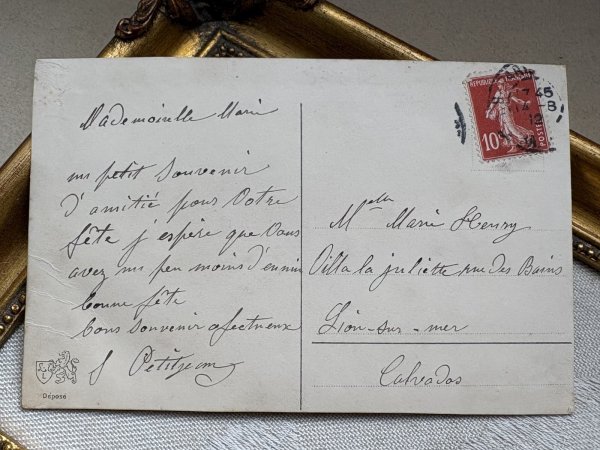 Mademoiselle Marie
un petit souvenir
d'amitié pour votre
fête j'espère que vous
avez un peu moins d'ennui
bonne fête
bons souvenir afectueux
Petitjean
Déposé
REPUBLIQUE FRANÇAISE
10
POSTES
45
8
12
Melle Marie Henry
Villa la juliette rue des Bains
Lion-sur-mer
Calvados